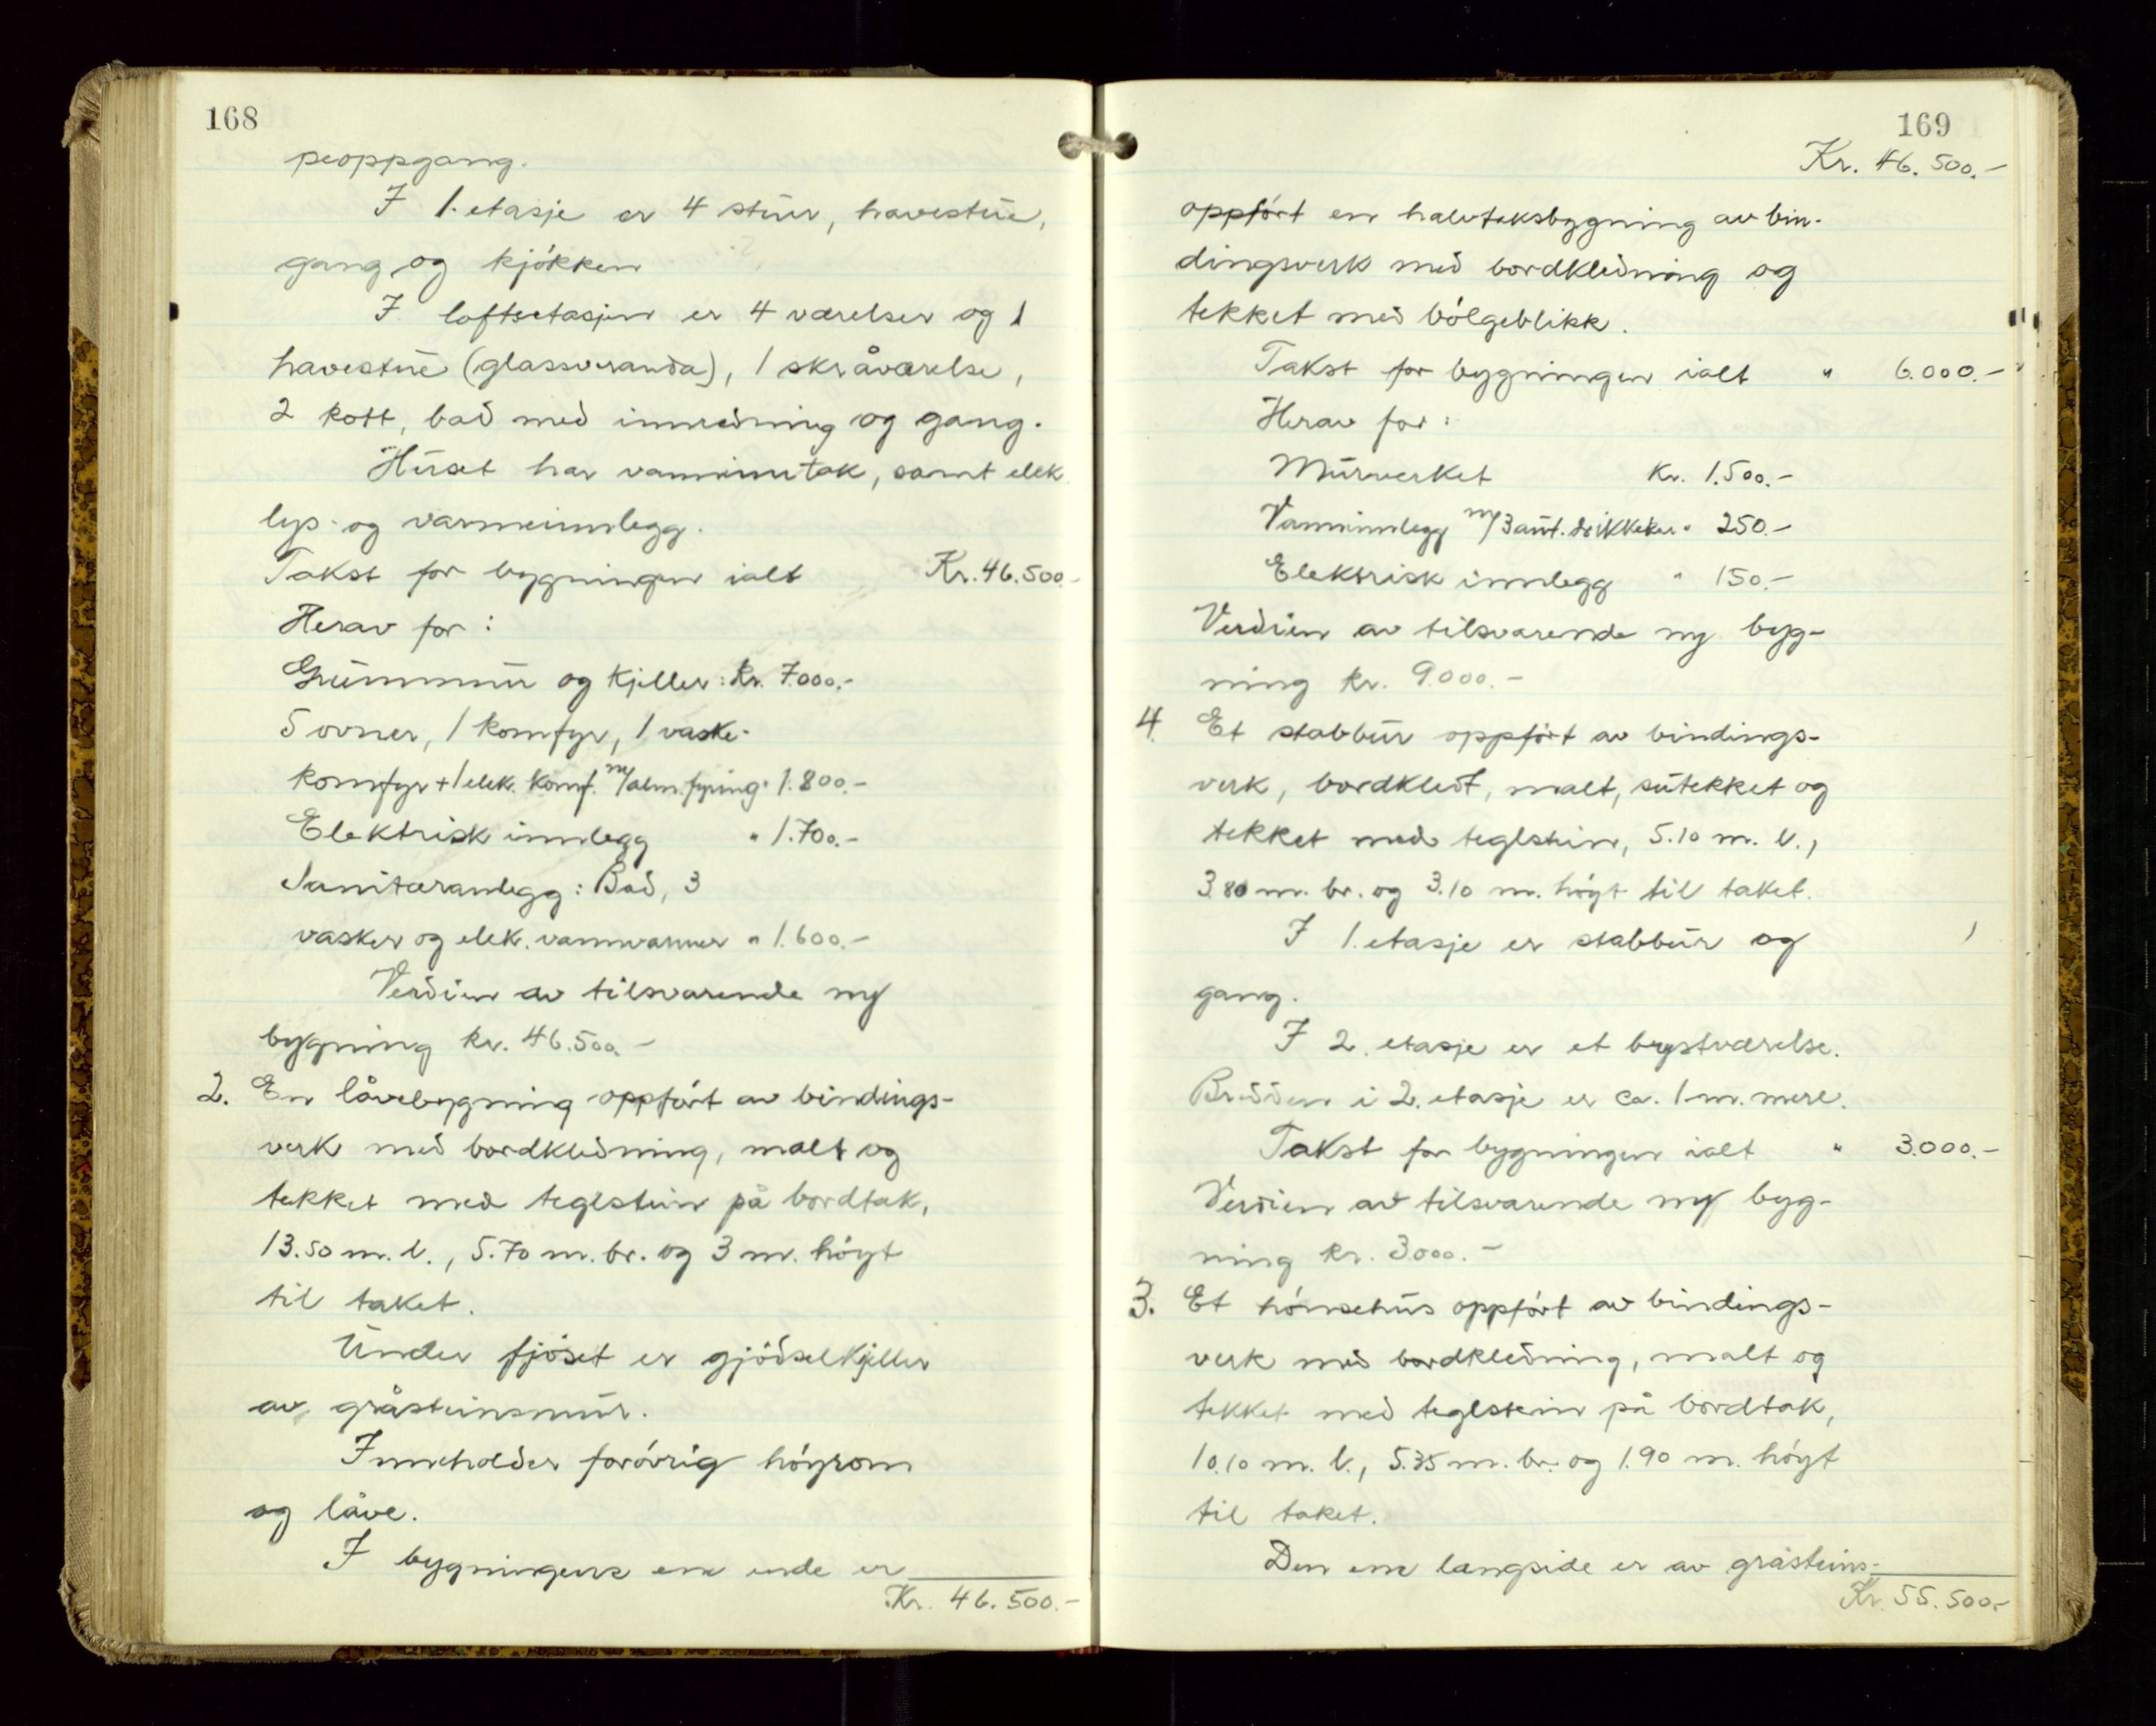 168
peoppgang.
I 1. etasje er 4 stuer, havestue,
gang og kjökken
I loftsetasjen er 4 værelser og 1
havestue (glassveranda), 1 skråværelse,
2 kott, bad med innredning og gang.
Huset har vanninntak, samt elek.
lys- og varmeinnlegg.
Takst for bygningen ialt Kr. 46.500.-
Herav for:
Grunnmur og kjeller: Kr. 7.000.-
5 ovner, 1 komfyr, 1 vaske-
komfyr + 1 elek. komf. m/alm. fyring " 1.800.-
Elektrisk innlegg " 1.700.-
Sanitæranlegg: Bad, 3
vasker og elek. vannvarmer " 1.600.-
Verdien av tilsvarende ny
bygning kr. 46.500.-
2. En låvebygning oppført av bindings-
verk med bordkledning, malt og
tekket med teglstein på bordtak,
13.50 m. l., 5.70 m. br. og 3 m. höyt
til taket.
Under fjöset er gjödselkjeller
av gråsteinsmur.
Inneholder forövrig höyrom
og låve.
I bygningens ene ende er
Kr. 46.500.-
169
Kr. 46.500.-
oppfört en halvtaksbygning av bin-
dingsverk med bordkledning og
tekket med bölgeblikk.
Takst for bygningen ialt " 6.000.-
Herav for:
Murverket Kr. 1.500.-
Vanninnlegg m/3 aut. drikkekar " 250.-
Elektrisk innlegg " 150.-
Verdien av tilsvarende ny byg-
ning kr. 9.000.-
4. Et stabbur oppfört av bindings-
verk, bordkledt, malt, sutekket og
tekket med teglstein, 5.10 m. l.,
3.80 m. br. og 3.10 m. höyt til taket.
I 1. etasje er stabbur og
gang.
I 2. etasje er et brystværelse.
Bredden i 2. etasje er ca. 1 m. mere.
Takst for bygningen ialt " 3.000.-
Verdien av tilsvarende ny byg-
ning kr. 3.000.-
3. Et hönsehus oppfört av bindings-
verk med bordkledning, malt og
tekket med teglstein på bordtak,
10.10 m. l., 5.35 m. br. og 1.90 m. höyt
til taket.
Den ene langside er av gråsteins-
Kr. 55.500.-